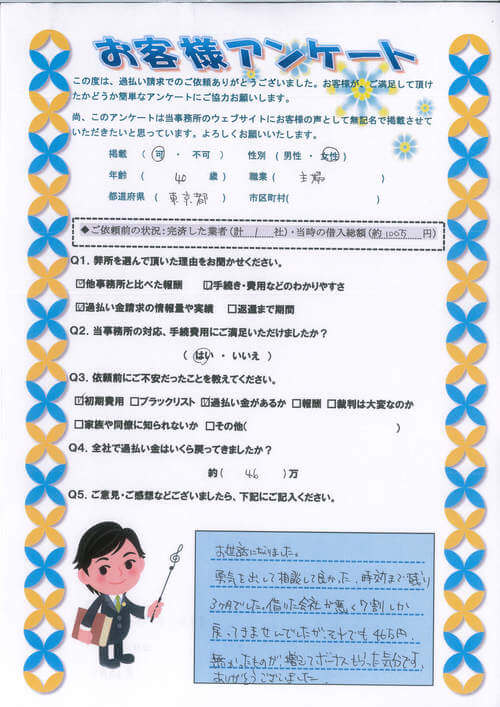 お客様アンケート
この度は、過払い請求でのご依頼ありがとうございました。お客様が、ご満足して頂け
たかどうか簡単なアンケートにご協力お願いします。
尚、このアンケートは当事務所のウェブサイトにお客様の声として無記名で掲載させて
いただきたいと思っています。よろしくお願いいたします。
掲載 ( 可 ・ 不可 ) 性別 ( 男性 ・ 女性 )
年齢 ( 40 歳 ) 職業 ( 主婦 )
都道府県 ( 東京都 ) 市区町村( )
◆ご依頼前の状況：完済した業者(計 1 社)・当時の借入総額(約 100万 円)
Q1．弊所を選んで頂いた理由をお聞かせください。
☑他事務所と比べた報酬 ☑手続き・費用などのわかりやすさ
☑過払い金請求の情報量や実績 □返還まで期間
Q2．当事務所の対応、手続費用にご満足いただけましたか？
( はい ・ いいえ )
Q3．依頼前にご不安だったことを教えてください。
☑初期費用 □ブラックリスト ☑過払い金があるか □報酬 □裁判は大変なのか
□家族や同僚に知られないか □その他( )
Q4．全社で過払い金はいくら戻ってきましたか？
約( 46 )万
Q5．ご意見・ご感想などございましたら、下記にご記入ください。
お世話になりました。
勇気を出して相談して良かった、時効まで残り
3ヶ月でした。借りた会社が悪く7割しか
戻ってきませんでしたが、それでも46万円
無かったものが、増えてボーナスもらった気分です。
ありがとうございました